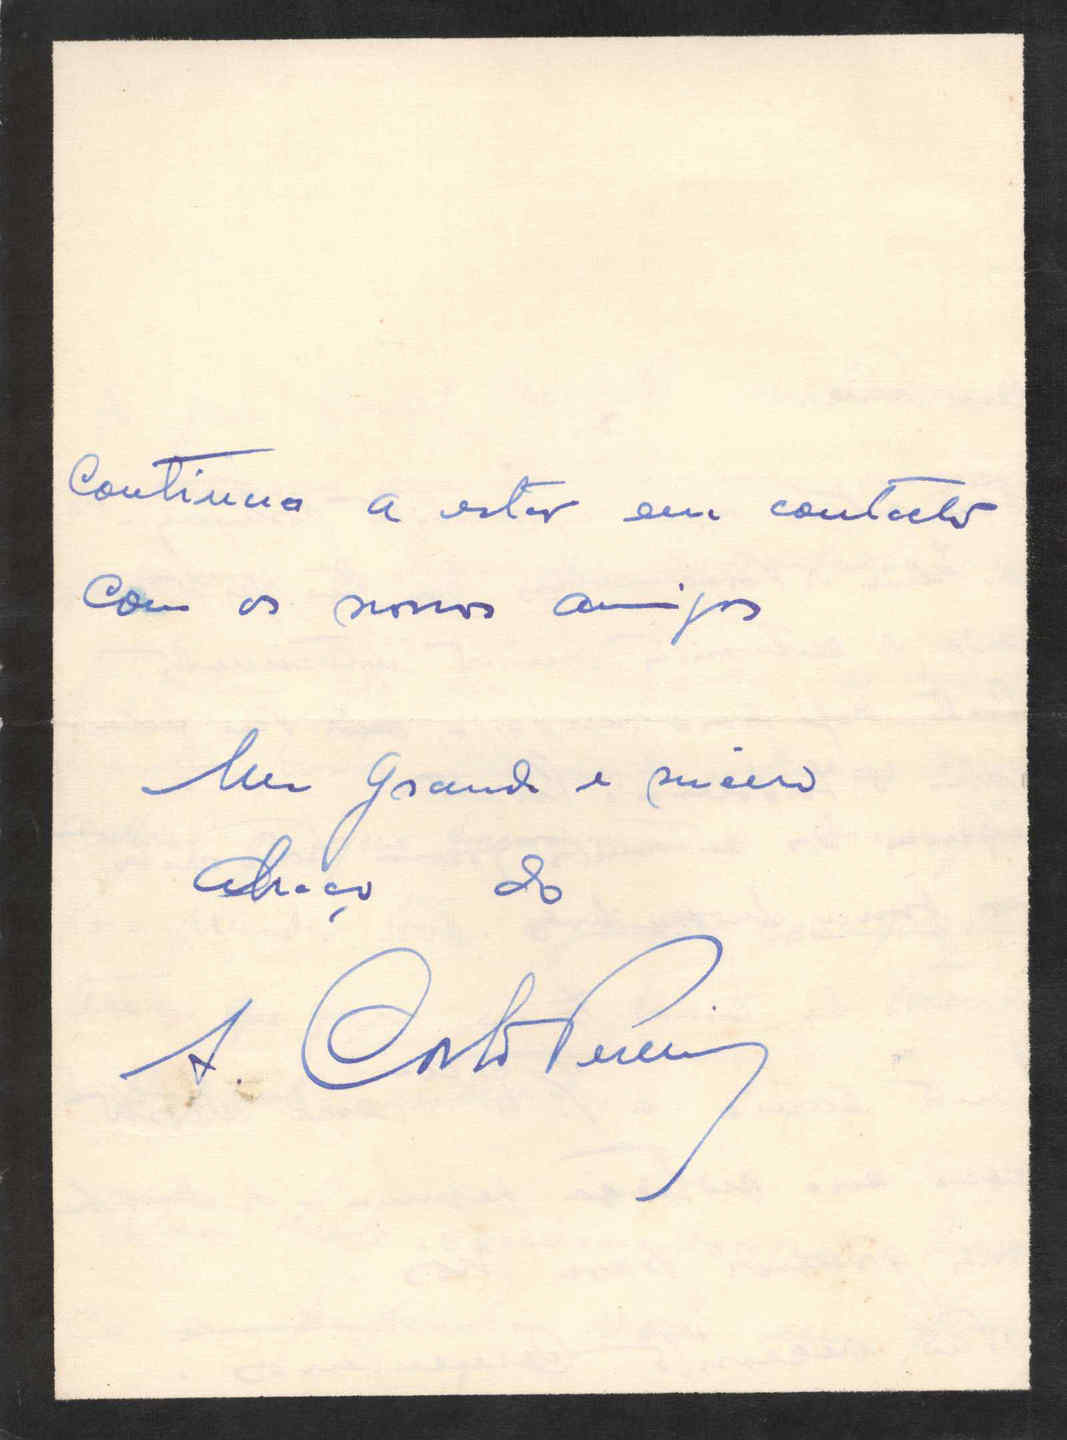 Continua a estar em contacto
com os nossos amigos
Um grande e sincero
abraço do
A. Corte Pereira